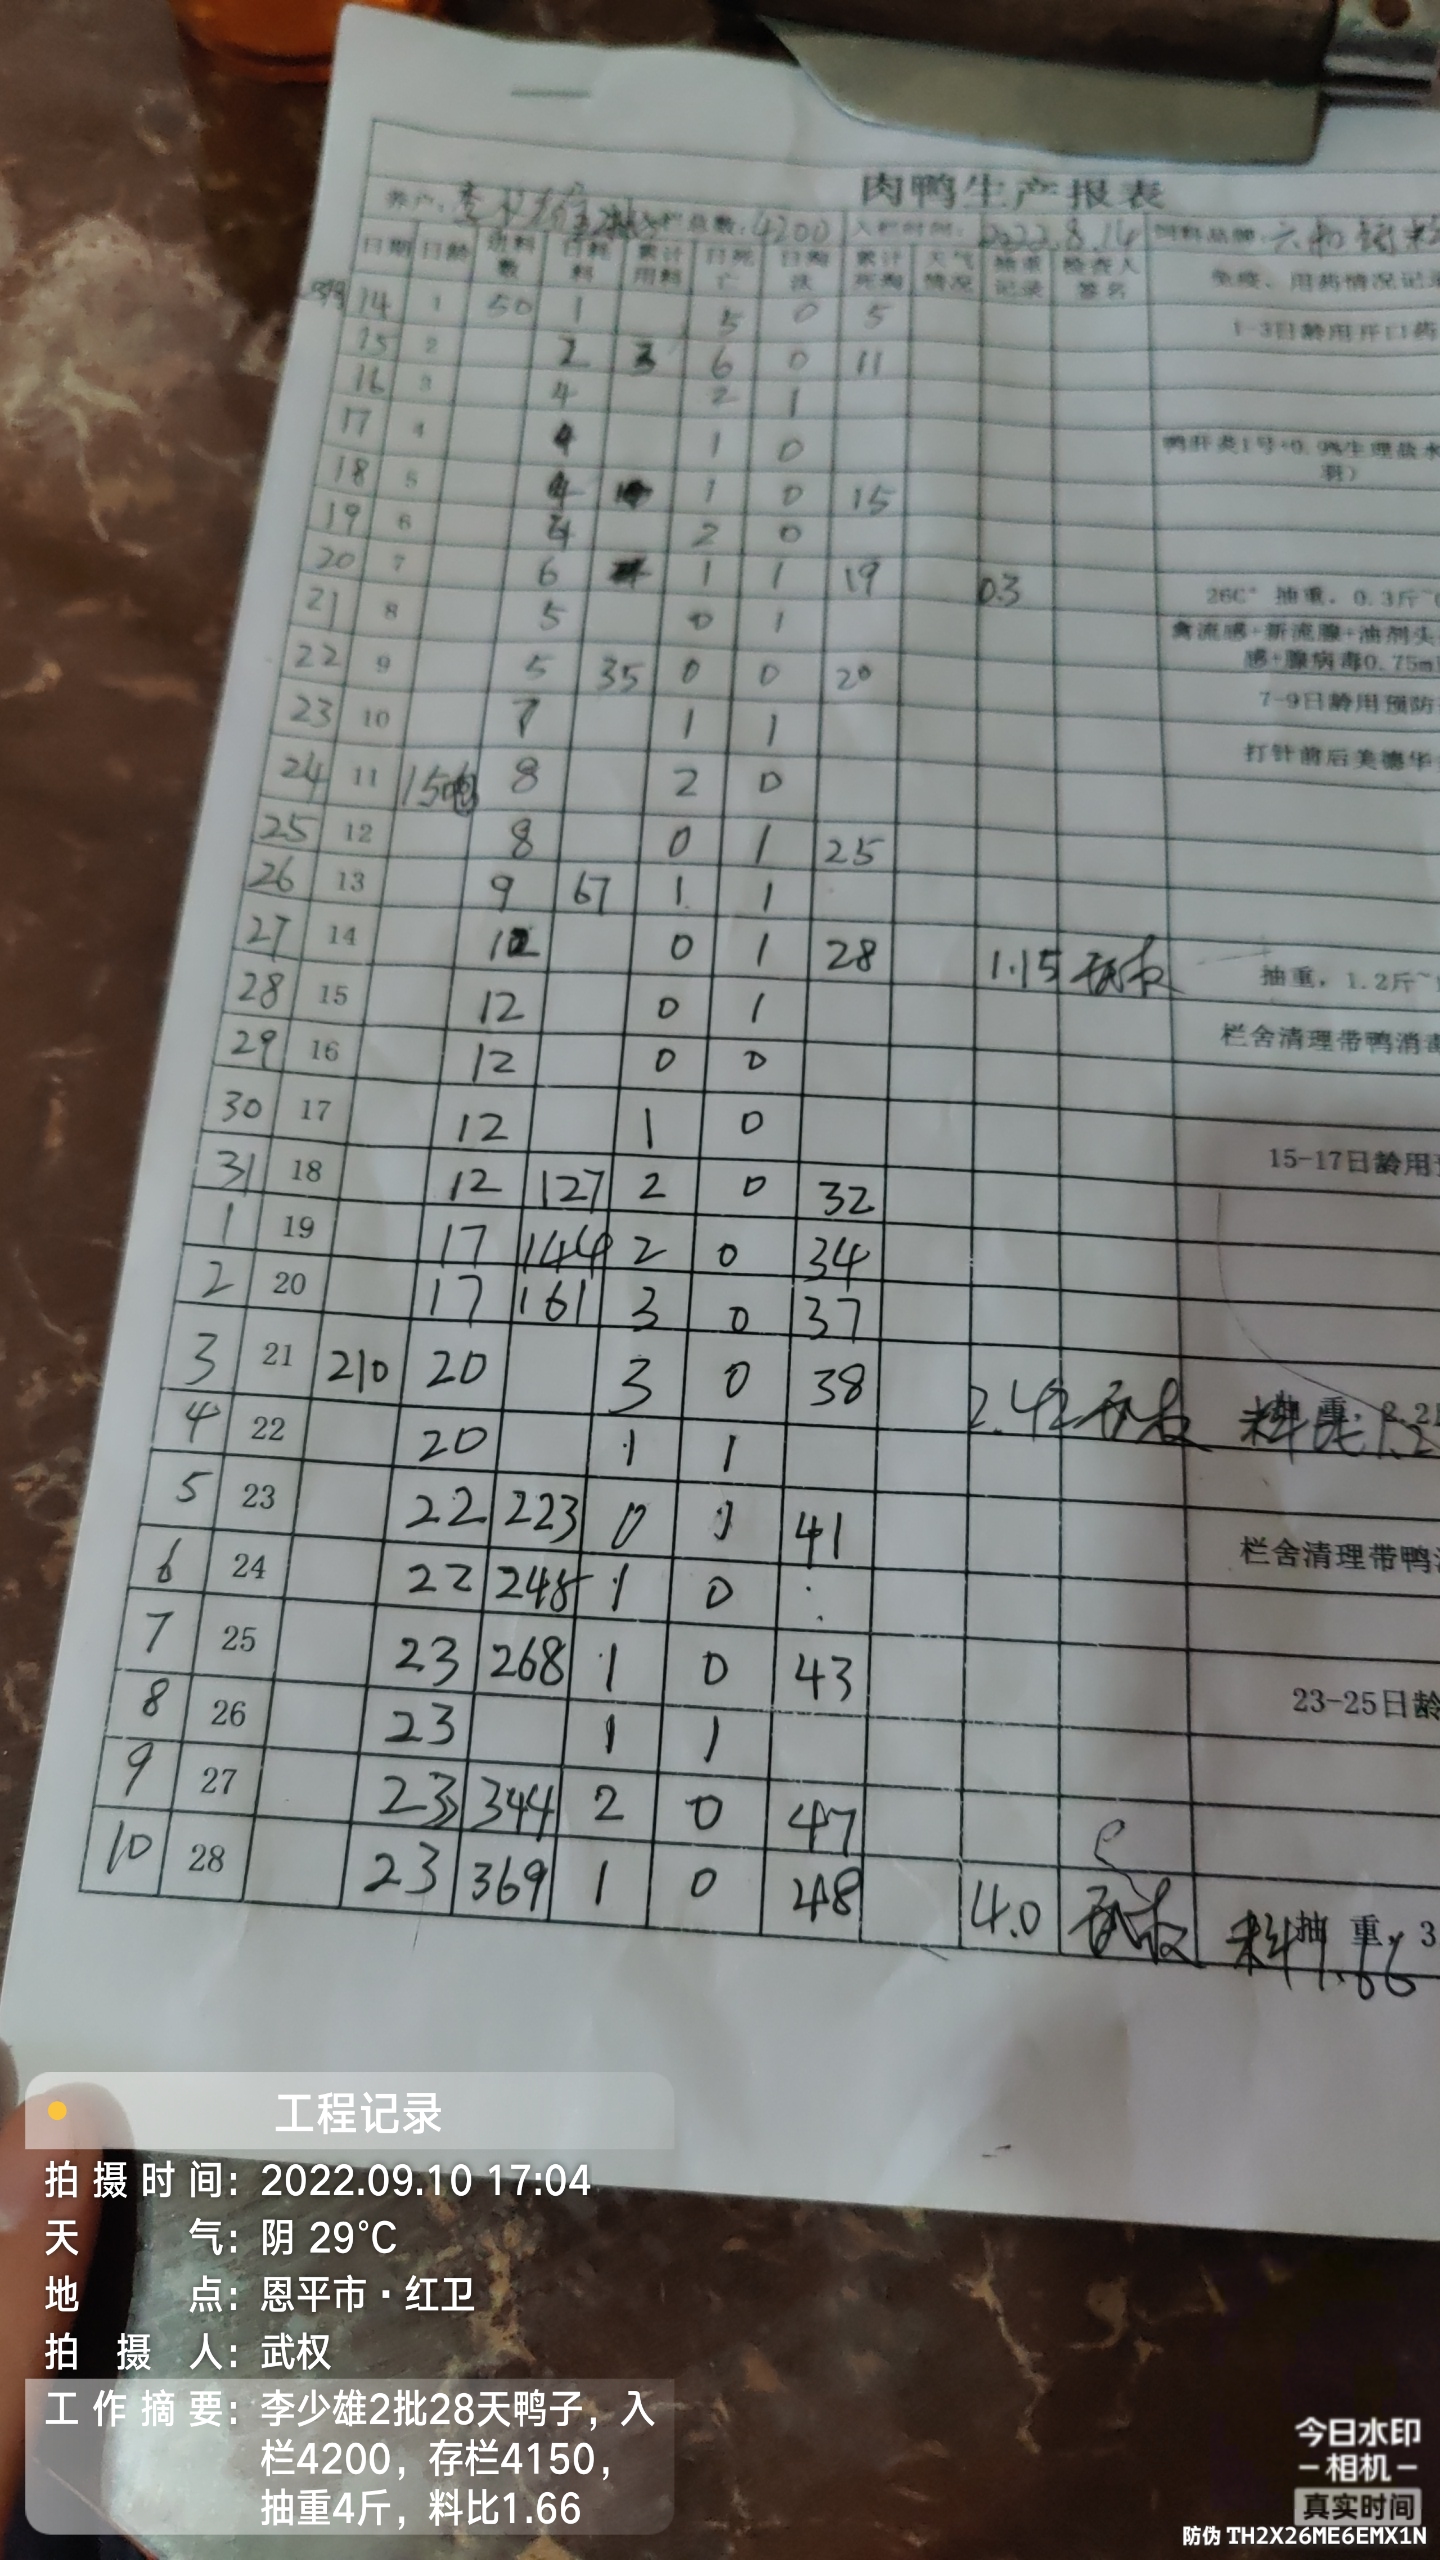 肉鸭生产报表
养户: 李少雄2批 入栏总数: 4200 入栏时间: 2022.8.14 饲料品牌: 六和
日期 日龄 进料数 日耗料 累计用料 日死亡 日淘汰 累计死淘 天气情况 抽重记录 检查人签名 免疫、用药情况记录
14 1 50 1 5 0 5 1-3日龄用开口药
15 2 2 3 6 0 11
16 3 4 2 1
17 4 4 1 0 鸭肝炎1号+0.9%生理盐水
羽)
18 5 4 1 0 15
19 6 4 2 0
20 7 6 1 1 19 0.3 26C° 抽重, 0.3斤~
21 8 5 0 1 禽流感+新流腺+油剂头
感+腺病毒0.75m
22 9 5 35 0 0 20 7-9日龄用预防
23 10 7 1 1 打针前后美德华
24 11 150包 8 2 0
25 12 8 0 1 25
26 13 9 67 1 1
27 14 12 0 1 28 1.15 武权 抽重, 1.2斤~
28 15 12 0 1 栏舍清理带鸭消毒
29 16 12 0 0
30 17 12 1 0 15-17日龄用
31 18 12 127 2 0 32
1 19 17 144 2 0 34
2 20 17 161 3 0 37
3 21 210 20 3 0 38 2.42 武权 抽重, 2.2 料比1.2
4 22 20 1 1
5 23 22 223 0 1 41 栏舍清理带鸭
6 24 22 248 1 0
7 25 23 268 1 0 43 23-25日龄
8 26 23 1 1
9 27 23 344 2 0 47
10 28 23 369 1 0 48 4.0 武权 抽重, 3 料1.66
工程记录
拍摄时间: 2022.09.10 17:04
天气: 阴 29°C
地点: 恩平市·红卫
拍摄人: 武权
工作摘要: 李少雄2批28天鸭子, 入
栏4200, 存栏4150,
抽重4斤, 料比1.66
今日水印
-相机-
真实时间
防伪 TH2X26ME6EMX1N